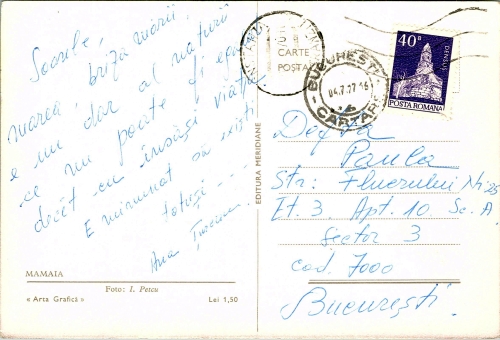 Soarele,
briza mării,
marea, un dar al naturii
e
ce nu poate fi
decît cu însăși viața
E minunat să exiști
totuși ---
Ana
MAMAIA
Foto: I. Petcu
« Arta Grafică »
Lei 1,50
EDITURA MERIDIANE
CARTE
POȘTALĂ
BUCUREȘTI
04.7.77-16
CARTARE
40B
DENSUȘ
POSTA ROMANA
Paula
Str: Fluerului Nr 25
Et. 3. Apt. 10 Sc. A.
Sector 3
cod. 7000
București.